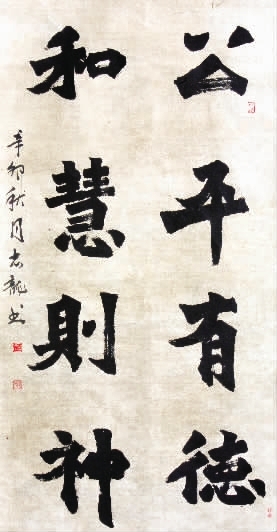 公平有德
和慧則神
辛卯秋月志龍书